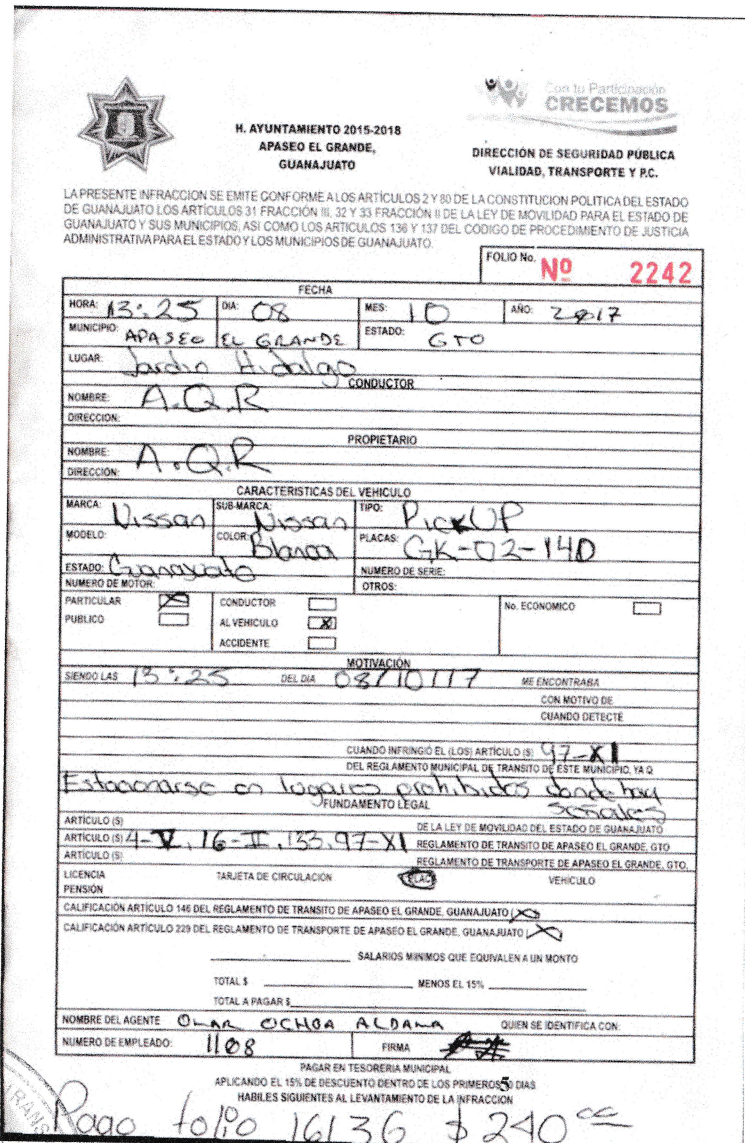 Con tu Participación
CRECEMOS
H. AYUNTAMIENTO 2015-2018
APASEO EL GRANDE,
GUANAJUATO
DIRECCIÓN DE SEGURIDAD PÚBLICA
VIALIDAD, TRANSPORTE Y P.C.
LA PRESENTE INFRACCION SE EMITE CONFORME A LOS ARTÍCULOS 2 Y 80 DE LA CONSTITUCION POLITICA DEL ESTADO
DE GUANAJUATO LOS ARTÍCULOS 31 FRACCIÓN III, 32 Y 33 FRACCIÓN II DE LA LEY DE MOVILIDAD PARA EL ESTADO DE
GUANAJUATO Y SUS MUNICIPIOS, ASI COMO LOS ARTICULOS 136 Y 137 DEL CODIGO DE PROCEDIMIENTO DE JUSTICIA
ADMINISTRATIVA PARA EL ESTADO Y LOS MUNICIPIOS DE GUANAJUATO.
FOLIO No. Nº 2242
FECHA
HORA: 13:25 DIA: 08 MES: 10 AÑO: 2017
MUNICIPIO: APASEO EL GRANDE ESTADO: GTO
LUGAR: Jardin Hidalgo
CONDUCTOR
NOMBRE: A.Q.R
DIRECCION:
PROPIETARIO
NOMBRE: A.Q.R
DIRECCION:
CARACTERISTICAS DEL VEHICULO
MARCA: Nissan SUB-MARCA: Nissan TIPO: PickUP
MODELO: COLOR: Blanca PLACAS: GK-02-140
ESTADO: Guanajuato NUMERO DE SERIE:
NUMERO DE MOTOR: OTROS:
PARTICULAR X CONDUCTOR No. ECONOMICO
PUBLICO AL VEHICULO X
ACCIDENTE
MOTIVACIÓN
SIENDO LAS 13:25 DEL DIA 08/10/17 ME ENCONTRABA
CON MOTIVO DE
CUANDO DETECTÉ
CUANDO INFRINGIÓ EL (LOS) ARTÍCULO (S) 97-XI
DEL REGLAMENTO MUNICIPAL DE TRANSITO DE ESTE MUNICIPIO, YA Q
Estacionarse en lugares prohibidos donde hay
señales
FUNDAMENTO LEGAL
ARTÍCULO (S) DE LA LEY DE MOVILIDAD DEL ESTADO DE GUANAJUATO
ARTÍCULO (S) 4-V, 16-II, 133, 97-XI REGLAMENTO DE TRANSITO DE APASEO EL GRANDE, GTO
ARTÍCULO (S) REGLAMENTO DE TRANSPORTE DE APASEO EL GRANDE, GTO,
LICENCIA TARJETA DE CIRCULACIÓN VEHÍCULO
PENSIÓN
CALIFICACIÓN ARTÍCULO 146 DEL REGLAMENTO DE TRANSITO DE APASEO EL GRANDE, GUANAJUATO (X)
CALIFICACIÓN ARTÍCULO 229 DEL REGLAMENTO DE TRANSPORTE DE APASEO EL GRANDE, GUANAJUATO (X
SALARIOS MINIMOS QUE EQUIVALEN A UN MONTO
TOTAL $ MENOS EL 15%
TOTAL A PAGAR $
NOMBRE DEL AGENTE OMAR OCHOA ALDAMA QUIEN SE IDENTIFICA CON:
NUMERO DE EMPLEADO: 1108 FIRMA
PAGAR EN TESORERIA MUNICIPAL
APLICANDO EL 15% DE DESCUENTO DENTRO DE LOS PRIMEROS 5 DIAS
HABILES SIGUIENTES AL LEVANTAMIENTO DE LA INFRACCION
TRANS
Pago folio 16136 $240